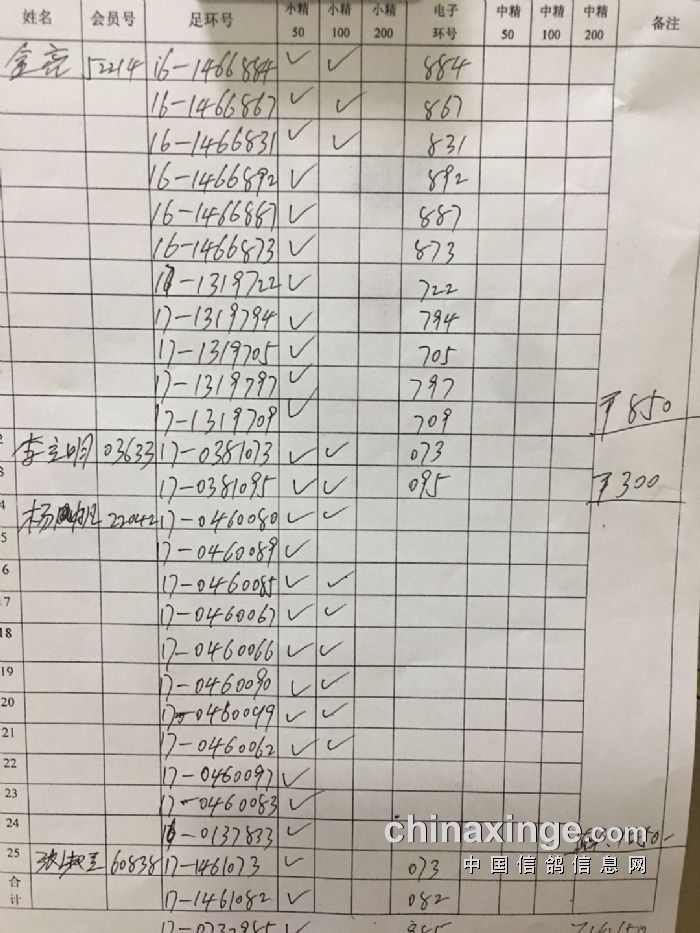 姓名 会员号 足环号 小精50 小精100 小精200 电子环号 中精50 中精100 中精200 备注
金亮 52214 16-1466884 ✓ ✓ 884
16-1466867 ✓ ✓ 867
16-1466831 ✓ ✓ 831
16-1466892 ✓ 892
16-1466887 ✓ 887
16-1466873 ✓ 873
17-1319722 ✓ 722
17-1319794 ✓ 794
17-1319705 ✓ 705
17-1319797 ✓ 797
17-1319709 ✓ 709 ¥850
2 李立明 03633 17-0381073 ✓ ✓ 073
3 17-0381095 ✓ ✓ 095 ¥300
4 杨 22042 17-0460080 ✓ ✓
5 17-0460089 ✓
6 17-0460085 ✓ ✓
17 17-0460067 ✓ ✓
18 17-0460066 ✓ ✓
19 17-0460090 ✓ ✓
20 17-0460049 ✓ ✓
21 17-0460062 ✓ ✓
22 17-0460097 ✓
23 17-0460083 ✓
24 16-0137833 ✓
chinaxinge.com
25 张淑玉 60838 17-1461073 ✓ 073
中国信鸽信息网
合计 17-1461082 ✓ 082